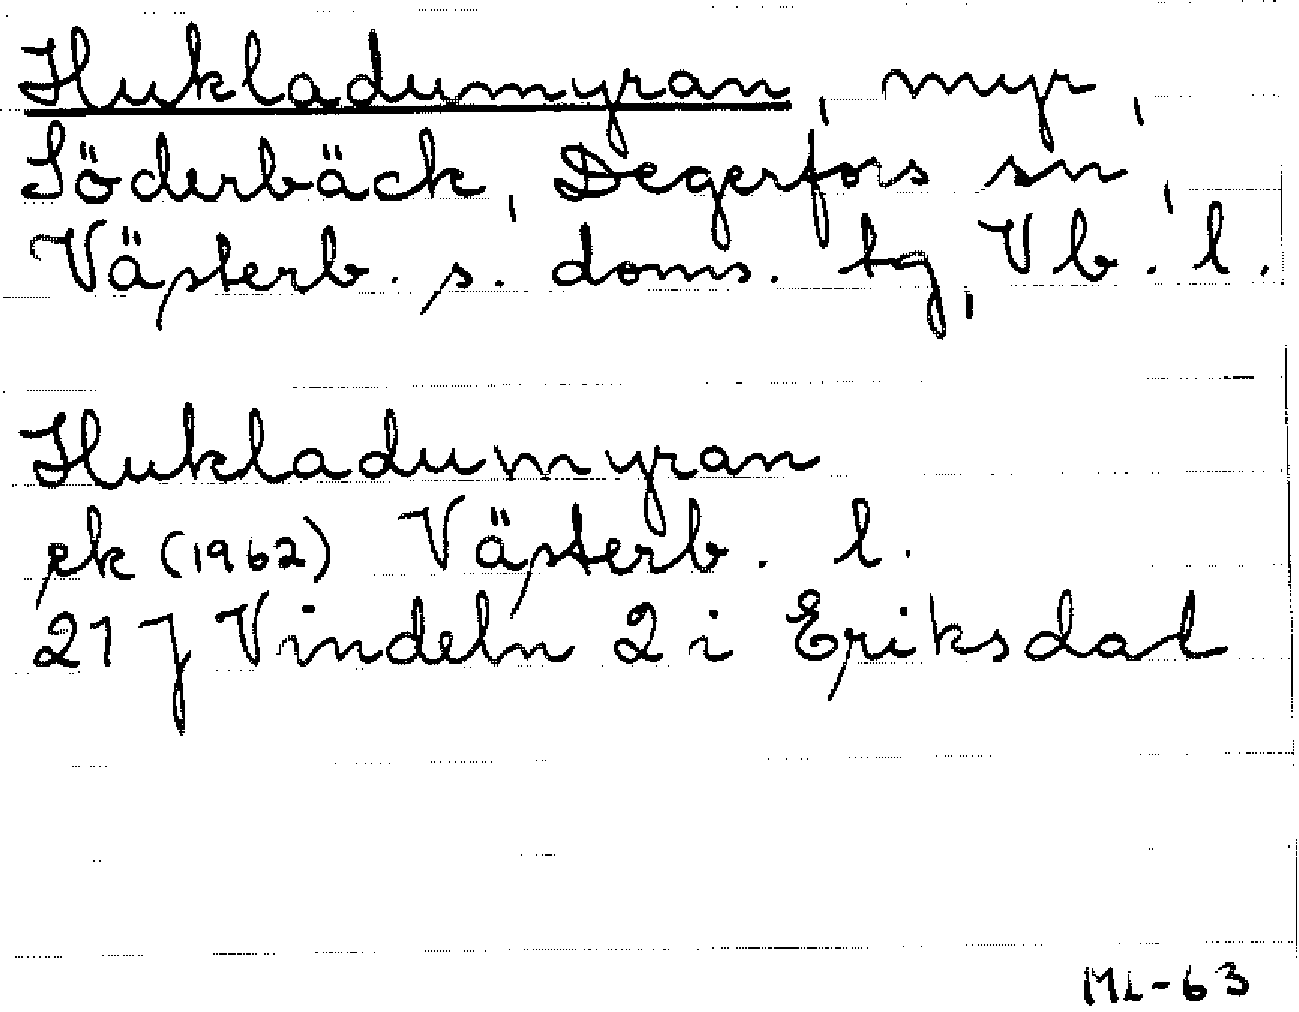 Hukladumyran, myr,
Söderbäck, Degerfors sn,
Västerb. s. doms. tg, Vb. l.
Hukladumyran
ek (1962) Västerb. l.
21 J Vindeln 2 i Eriksdal
ML-63